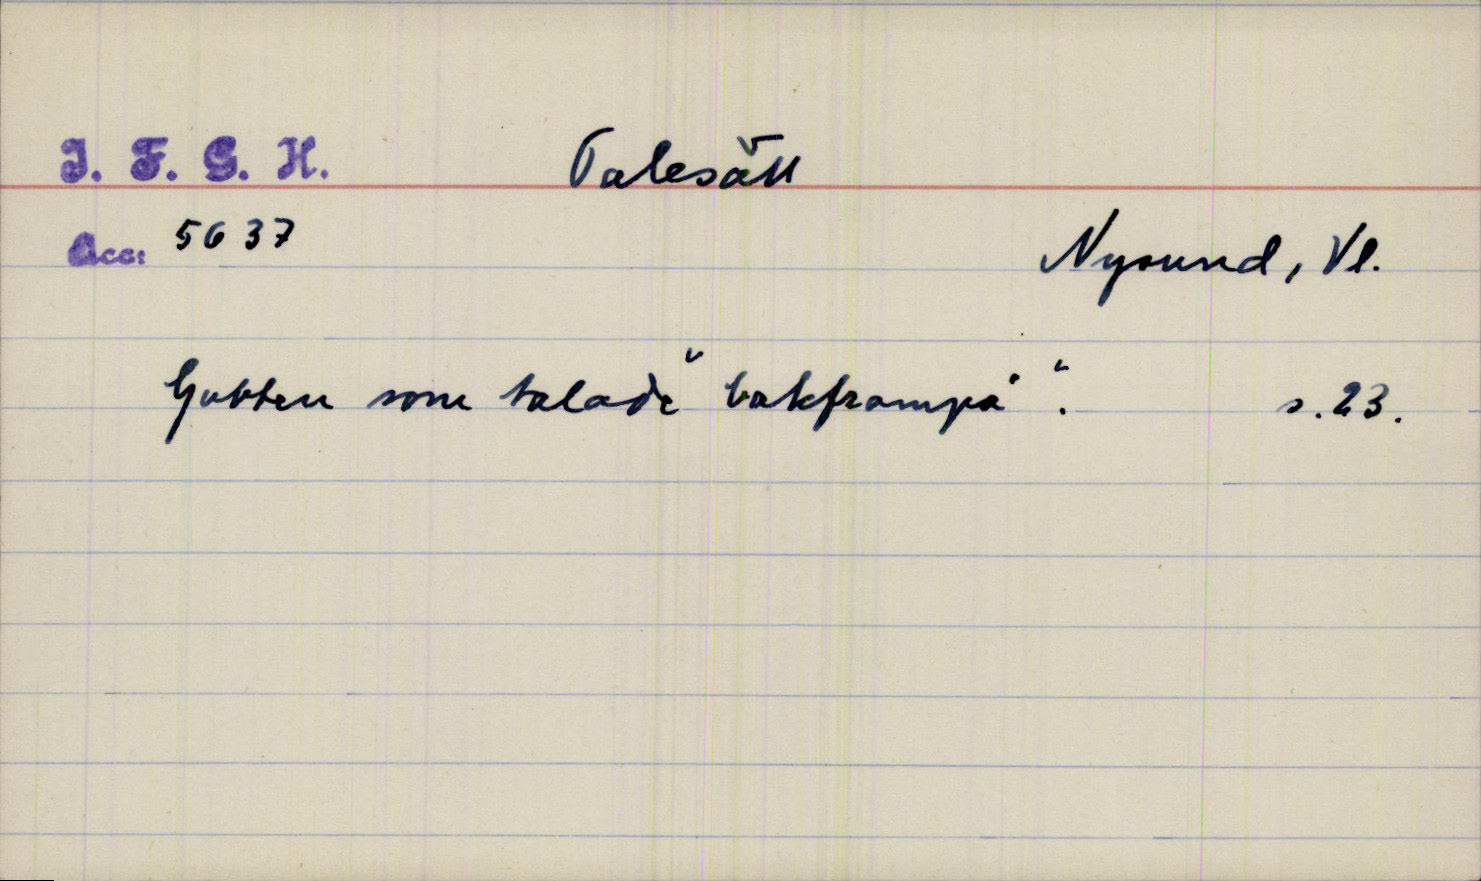 I. F. G. H.
Talesätt
Acc: 5637
Nysund, Vl.
Gubben som talade "bakframpå". s. 23.